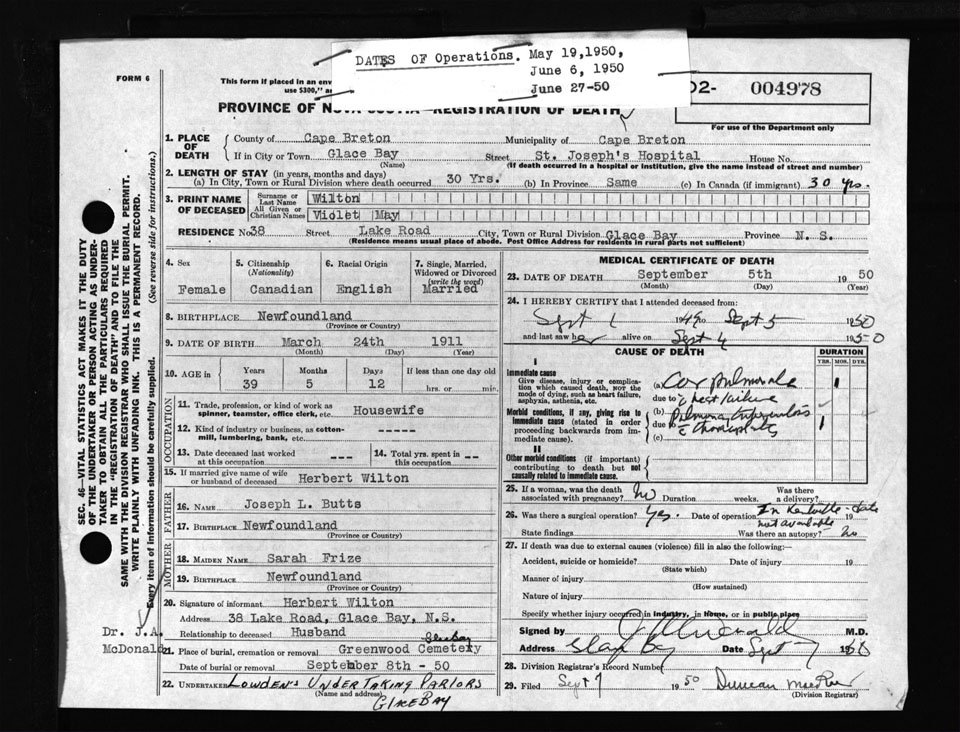 DATES OF Operations. May 19,1950,
June 6, 1950
June 27-50
FORM 6
This form if placed in an env
use $300," a
02- 004978
For use of the Department only
PROVINCE OF NOVA SCOTIA—REGISTRATION OF DEATH
1. PLACE OF DEATH County of Cape Breton Municipality of Cape Breton
If in City or Town Glace Bay Street St. Joseph's Hospital House No.
(Name) (If death occurred in a hospital or institution, give the name instead of street and number)
2. LENGTH OF STAY (in years, months and days)
(a) In City, Town or Rural Division where death occurred 30 Yrs. (b) In Province Same (c) In Canada (if immigrant) 30 yrs.
3. PRINT NAME OF DECEASED Surname or Last Name Wilton
All Given or Christian Names Violet May
RESIDENCE No 38 Street Lake Road City, Town or Rural Division Glace Bay Province N. S.
(Residence means usual place of abode. Post Office Address for residents in rural parts not sufficient)
4. Sex Female
5. Citizenship (Nationality) Canadian
6. Racial Origin English
7. Single, Married, Widowed or Divorced (write the word) Married
8. BIRTHPLACE Newfoundland
(Province or Country)
9. DATE OF BIRTH March 24th 1911
(Month) (Day) (Year)
10. AGE in Years Months Days If less than one day old
39 5 12 hrs. or min.
OCCUPATION
11. Trade, profession, or kind of work as spinner, teamster, office clerk, etc. Housewife
12. Kind of industry or business, as cotton-mill, lumbering, bank, etc. -----
13. Date deceased last worked at this occupation ---
14. Total yrs. spent in this occupation ---
15. If married give name of wife or husband of deceased Herbert Wilton
FATHER
16. NAME Joseph L. Butts
17. BIRTHPLACE Newfoundland
(Province or Country)
MOTHER
18. MAIDEN NAME Sarah Frize
19. BIRTHPLACE Newfoundland
(Province or Country)
20. Signature of informant Herbert Wilton
Address 38 Lake Road, Glace Bay, N.S.
Relationship to deceased Husband
Glace Bay
21. Place of burial, cremation or removal Greenwood Cemetery
Date of burial or removal September 8th - 50
22. UNDERTAKER LOWDEN'S UNDERTAKING PARLORS
(Name and address)
GLACE BAY
Dr. J.A.
McDonald
SEC. 46—VITAL STATISTICS ACT MAKES IT THE DUTY
OF THE UNDERTAKER OR PERSON ACTING AS UNDER-
TAKER TO OBTAIN ALL THE PARTICULARS REQUIRED
IN THE "REGISTRATION OF DEATH" AND TO FILE THE
SAME WITH THE DIVISION REGISTRAR WHO SHALL ISSUE THE BURIAL PERMIT.
WRITE PLAINLY WITH UNFADING INK. THIS IS A PERMANENT RECORD.
Every item of information should be carefully supplied. (See reverse side for instructions.)
MEDICAL CERTIFICATE OF DEATH
23. DATE OF DEATH September 5th 1950
(Month) (Day) (Year)
24. I HEREBY CERTIFY that I attended deceased from:
Sept 1 1949 to Sept 5 1950
and last saw her alive on Sept 4 1950
CAUSE OF DEATH DURATION
YRS. MOS. DYS.
I
Immediate cause
Give disease, injury or complication which caused death, NOT the mode of dying, such as heart failure, asphyxia, asthenia, etc.
(a) Cor pulmonale 1
due to heart failure
Morbid conditions, if any, giving rise to immediate cause (stated in order proceeding backwards from immediate cause).
(b) Pulmonary tuberculosis 1
due to c̄ thoracoplasty
(c)
II
Other morbid conditions (if important) contributing to death but not causally related to immediate cause.
25. If a woman, was the death associated with pregnancy? No Duration weeks. Was there a delivery?
26. Was there a surgical operation? Yes. Date of operation In Kentville - date not available 19
State findings Was there an autopsy? No
27. If death was due to external causes (violence) fill in also the following:—
Accident, suicide or homicide? Date of injury 19
(State which)
Manner of injury
(How sustained)
Nature of injury
Specify whether injury occurred in industry, in home, or in public place
Signed by J A McDonald M.D.
Address Glace Bay Date Sept 7 1950
28. Division Registrar's Record Number
29. Filed Sept 7 1950 Duncan MacRae
(Division Registrar)